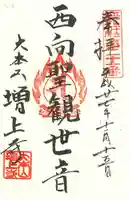 奉拝
平成廿七年十二月十五日
西向聖観世音
大本山
増上寺